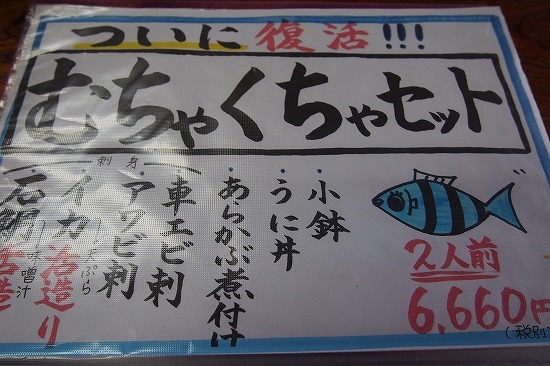 ついに復活!!!
むちゃくちゃセット
小鉢
うに丼
あらかぶ煮付け
車エビ刺
アワビ刺
刺身
イカ活造り
天ぷら
石鯛活造
味噌汁
2人前
6,660円
(税別)